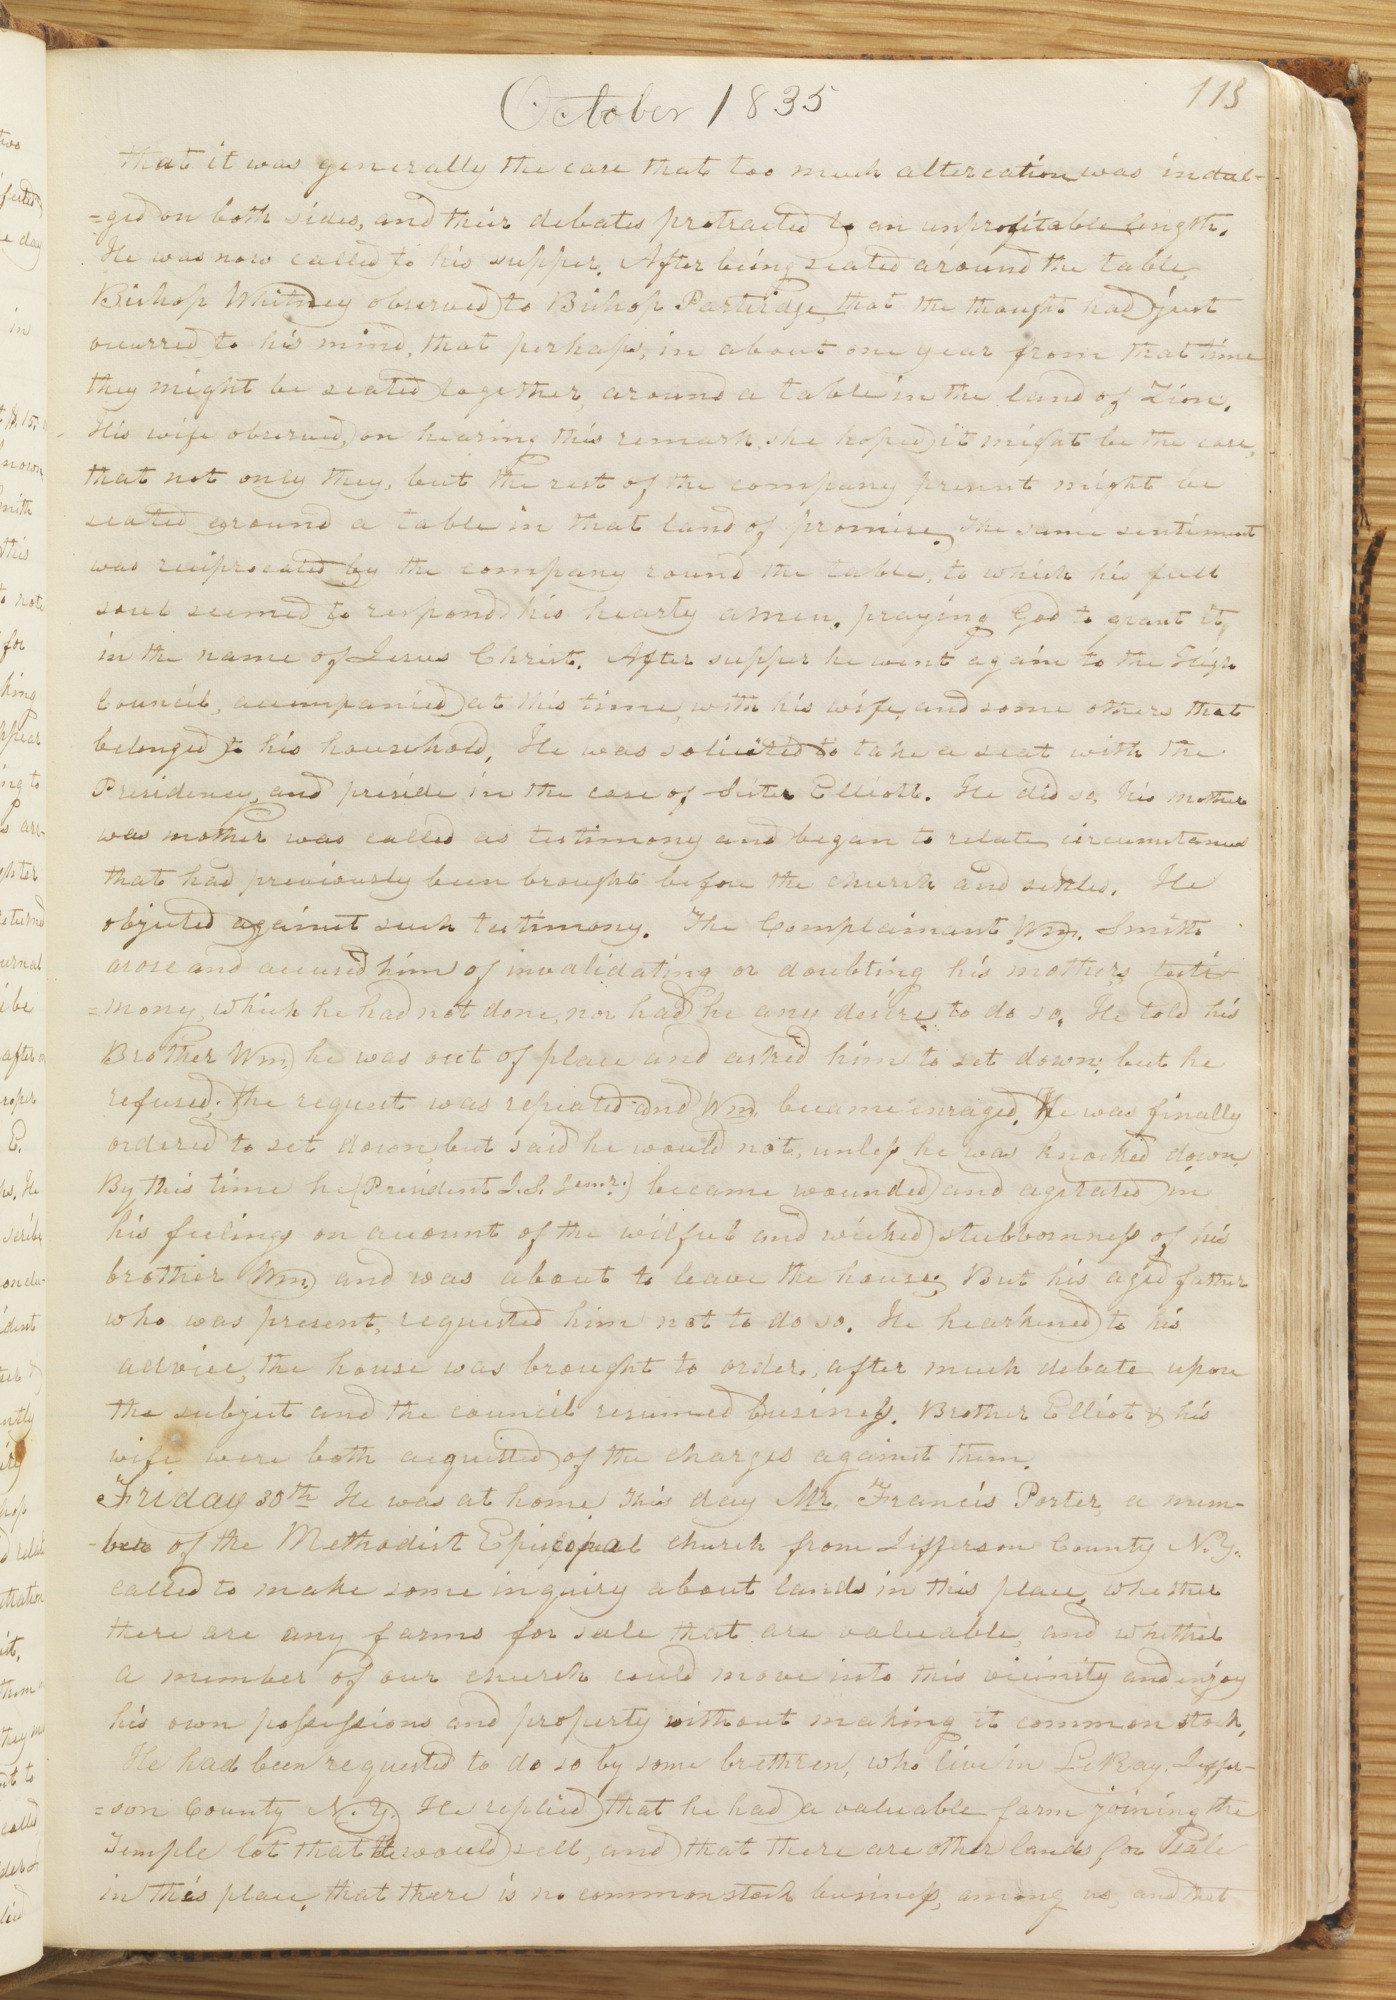 October 1835
113
that it was generally the case that too much altercation was indul-
=ged on both sides, and their debates protracted to an unprofitable length.
He was now called to his supper. After being seated around the table,
Bishop Whitney observed to Bishop Partridge, that the thought had just
occurred to his mind, that perhaps, in about one year from that time
they might be seated together, around a table in the land of Zion.
His wife observed, on hearing this remark, she hoped it might be the case,
that not only they, but the rest of the company present might be
seated around a table in that land of promise. The same sentiment
was reciprocated by the company round the table, to which his full
soul seemed to respond his hearty amen. praying God to grant it,
in the name of Jesus Christ. After supper he went again to the High
Council, accompanied at this time, with his wife, and some others that
belonged to his household. He was solicited to take a seat with the
Presidency, and preside in the case of Sister Elliott. He did so, his mother
was mother was called as testimony and began to relate circumstances
that had previously been brought before the church and settled. He
objected against such testimony. The Complainant Wm. Smith
arose and accused him of invalidating or doubting his mothers testi-
=mony, which he had not done, nor had he any desire to do so. He told his
Brother Wm. he was out of place and asked him to set down, but he
refused. the request was repeated and Wm. became enraged. He was finally
ordered to set down, but said he would not, unless he was knocked down.
By this time he (President J. S. Senr.) became wounded and agitated in
his feelings on account of the wilful and wicked stubbornness of his
brother Wm. and was about to leave the house, But his aged father
who was present, requested him not to do so. He hearkened to his
advice, the house was brought to order, after much debate upon
the subject and the council resumed business. Brother Elliot & his
wife were both acquitted of the charges against them.
Friday 30th He was at home. This day Mr. Francis Porter, a mem-
-ber of the Methodist Episcopal church from Jefferson County N.Y.
called to make some inquiry about lands in this place, whether
there are any farms for sale that are valuable, and whether
a member of our church could move into this vicinity and enjoy
his own possessions and property without making it common stock,
He had been requested to do so by some brethren, who live in LeRay, Jeffer-
=son County N.Y. He replied that he had a valuable farm joining the
Temple lot that he would sell, and that there are other lands for sale
in this place, that there is no common stock business, among us, and that